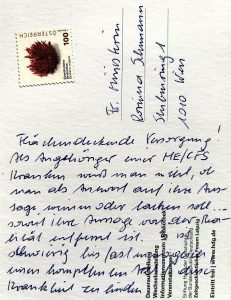 ÖSTERREICH
100
Fr. Ministerin
Korinna Schumann
Stubenring 1
1010 Wien
Flächendeckende Versorgung!
Als Angehöriger einer ME/CFS
Kranken weiß man nicht, ob
man als Antwort auf ihre Aus-
sage weinen oder lachen soll...
soweit ihre Aussage von der Rea-
lität entfernt ist.
schwierig bis fast unmöglich
einen Arzt für diese
Krankheit zu finden
Eintritt frei | www.hdg.de